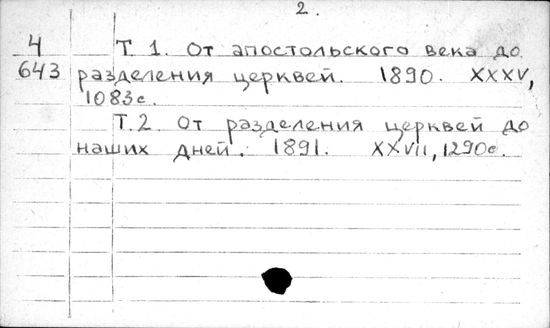 2.
4 Т. 1. От апостольского века до
643 разделения церквей. 1890. XXXV,
1083с.
Т. 2. От разделения церквей до
наших дней. 1891. XXVII, 1290с.